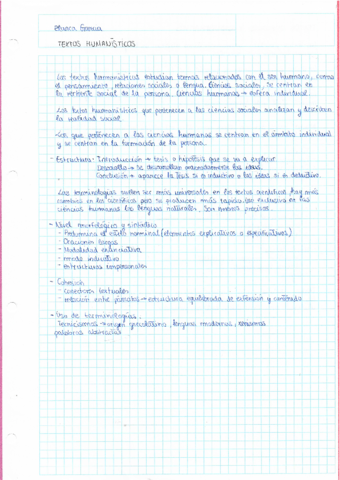 TEXTOS HUMANÍSTICOS
Los textos humanísticos estudian temas relacionados con el ser humano, como
el pensamiento, relaciones sociales o lengua. Ciencias sociales, se centran en
la vertiente social de la persona. Ciencias humanas → esfera individual.
Los textos humanísticos que pertenecen a las ciencias sociales analizan y describen
la realidad social.
-Los que pertenecen a las ciencias humanas se centran en el ámbito individual
y se centran en la formación de la persona.
- Estructura: Introducción → tesis o hipótesis que se va a explicar.
Desarrollo → se desarrollan las ideas.
Conclusión → aparece la tesis si es inductivo o las ideas si es deductivo.
Las terminologías suelen ser más universales en los textos científicos, hay más
cambios en los científicos pero se producen más rápido.
ciencias humanas las lenguas naturales, son menos precisos.
- Nivel morfológico y sintáctico
- Predomina el estilo nominal (elementos explicativos o especificativos)
- Oraciones largas
- Modalidad enunciativa
- modo indicativo
- estructuras impersonales
- Cohesión
- conectores textuales
- relación entre párrafos → estructura equilibrada de extensión y contenido
- Uso de terminologías.
Tecnicismos → origen grecolatino, lenguas modernas,
palabras abstractas